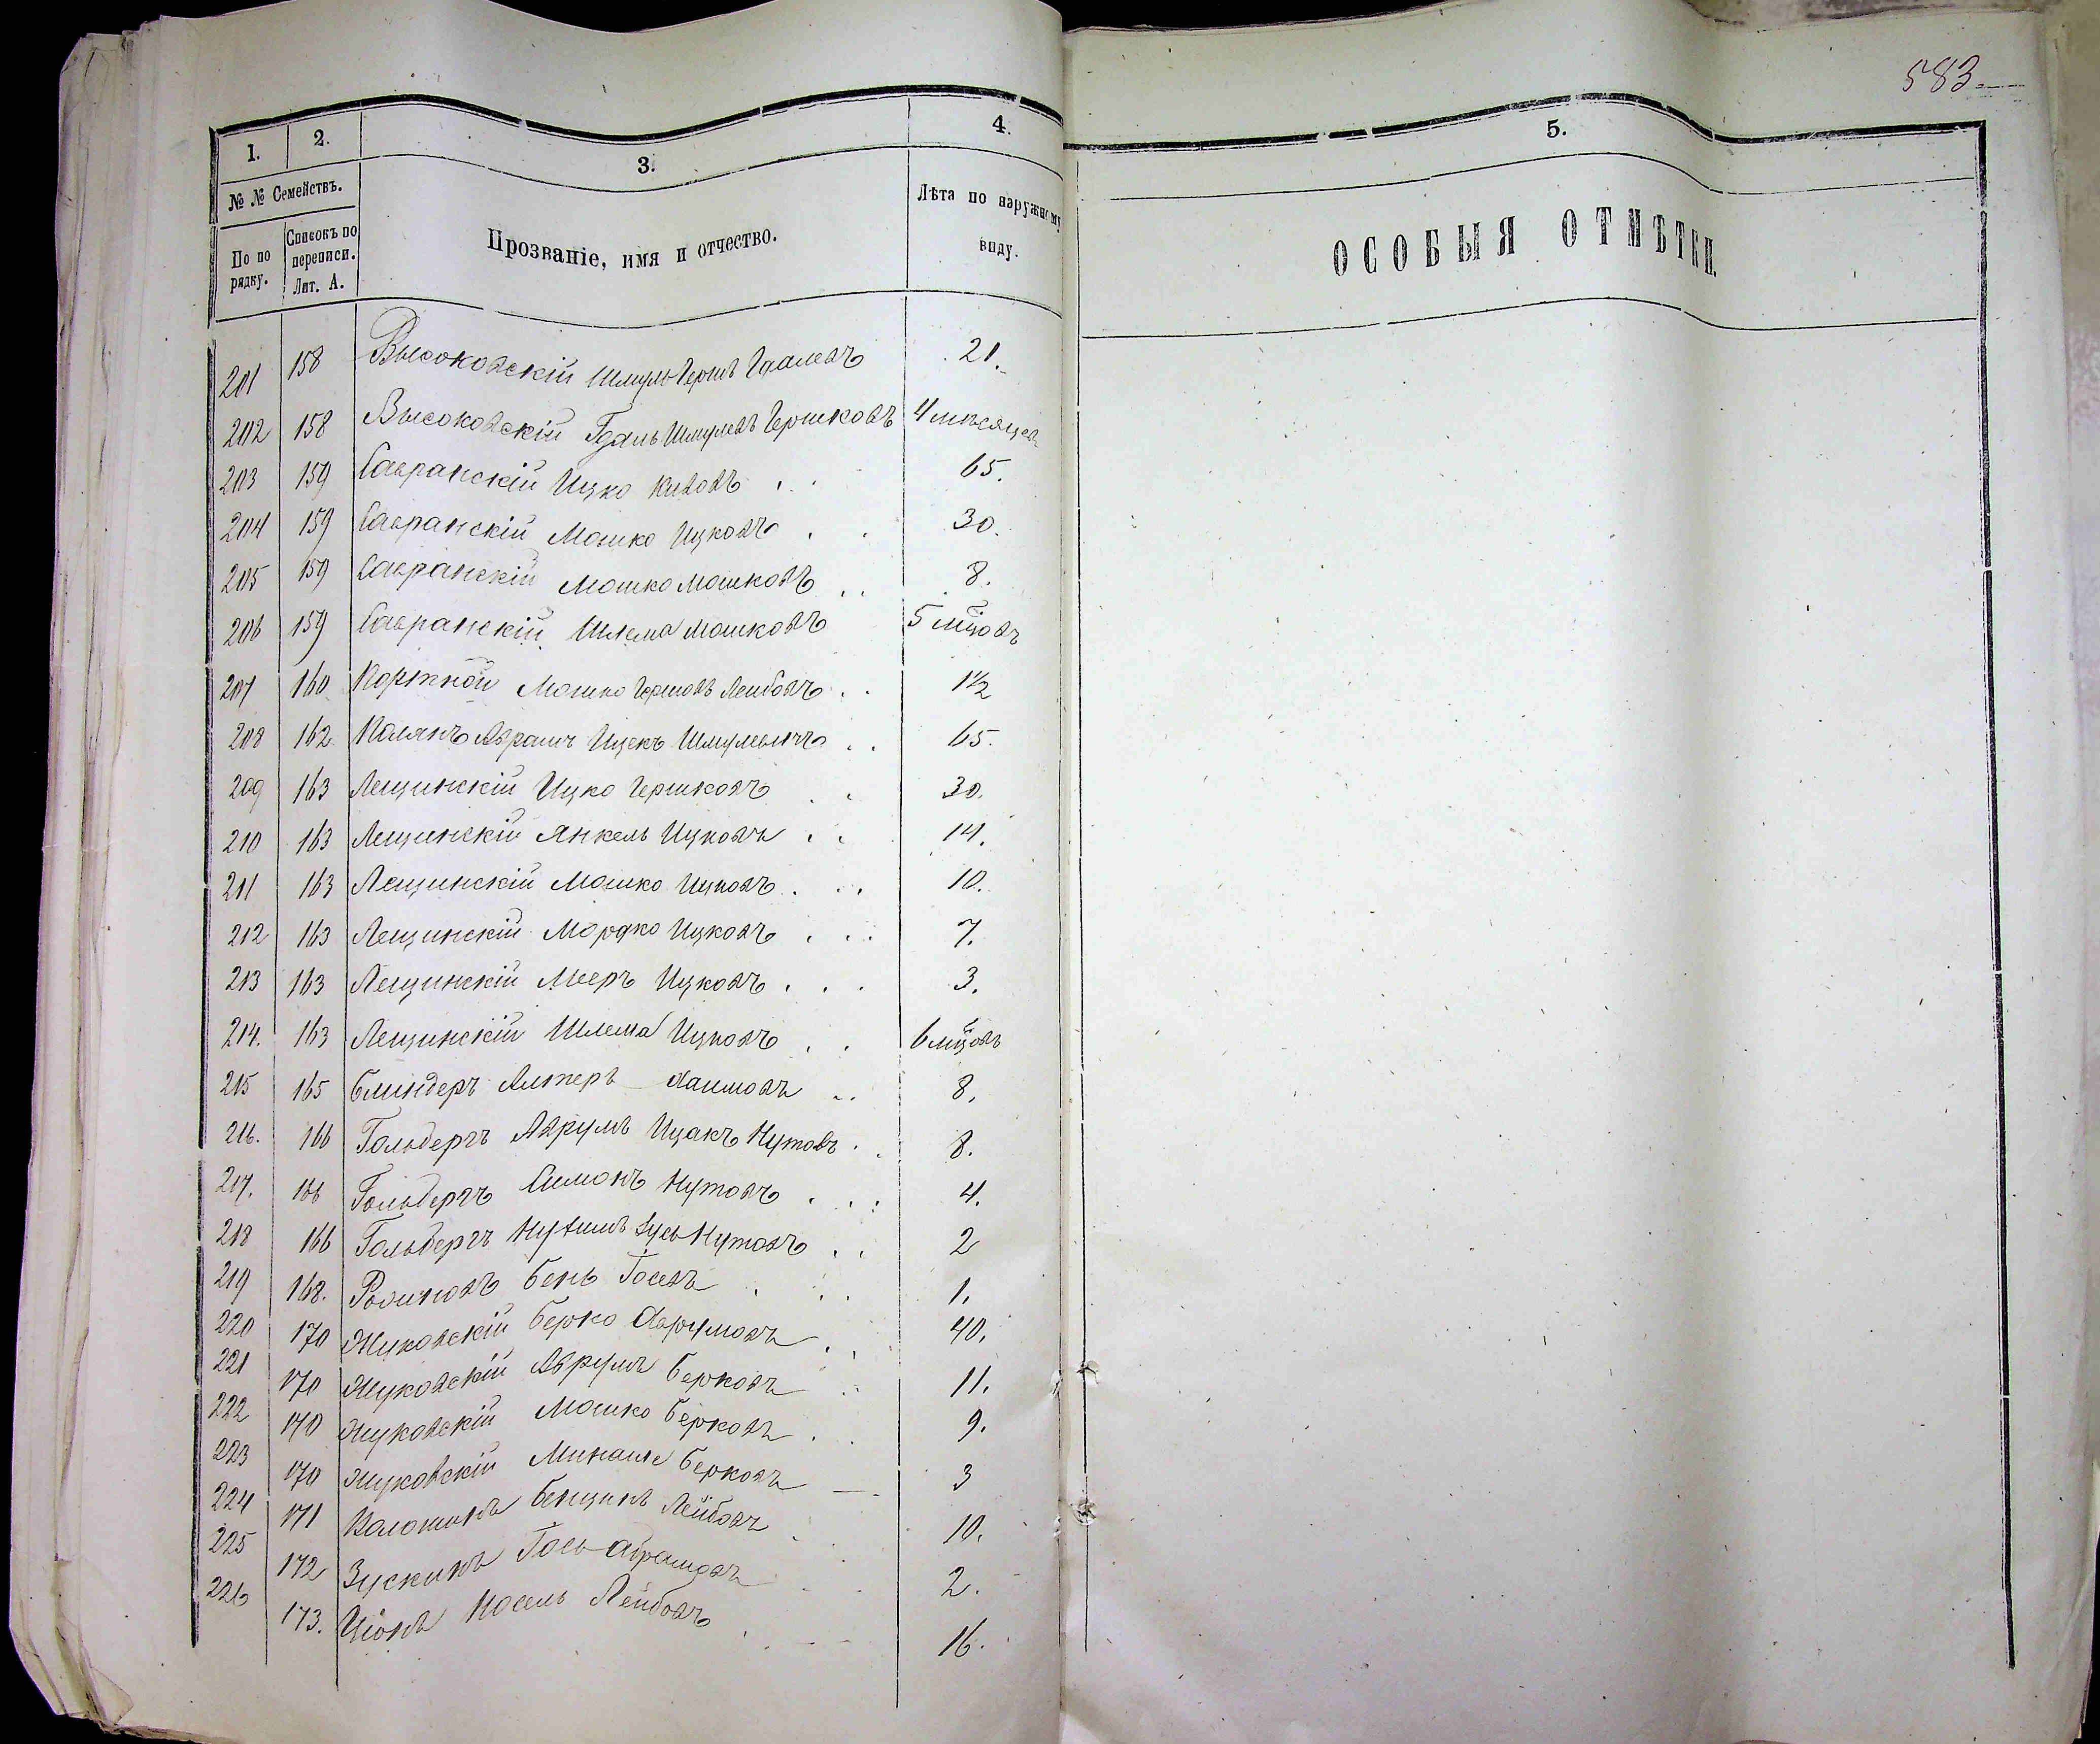 583.
1. 2. 3. 4. 5.
№ № Семействъ.
По порядку. Списокъ по переписи. Лит. А. Прозваніе, имя и отчество. Лѣта по наружному виду. ОСОБЫЯ ОТМѢТКИ.
201 158 Высоковскій Шмуль Гершъ Гдалевъ 21.
202 158 Высоковскій Гдаль Шмулевъ Гершковъ 4 мѣсяцев
203 159 Савранскій Ицко Кивовъ 65.
204 159 Савранскій Мошко Ицковъ 30.
205 159 Савранскій Мошко Мошковъ 8.
206 159 Савранскій Шлема Мошковъ 5 мцовъ
207 160 Портной Мошко Гершовъ Лейбовъ 1½
208 162 Полякъ Аврамъ Ицекъ Шмулевичъ 65.
209 163 Лещинскій Ицко Гершковъ 30.
210 163 Лещинскій Янкель Ицковъ 14.
211 163 Лещинскій Мошко Ицковъ 10.
212 163 Лещинскій Мордко Ицковъ 7.
213 163 Лещинскій Мееръ Ицковъ 3.
214. 163 Лещинскій Шлема Ицковъ 6 мцовъ
215 165 Блиндеръ Алтеръ Хаимовъ 8.
216. 166 Гольбергъ Аврумъ Ицакъ Нутовъ 8.
217. 166 Гольбергъ Симонъ Нутовъ 4.
218 166 Гольбергъ Зусь Нутовъ 2
219 168. Бень Госевъ 1.
220 170 Жуковскій Берко Аврумовъ 40.
221 170 Жуковскій Аврумъ Берковъ 11.
222 170 Жуковскій Мошко Берковъ 9.
223 170 Жуковскій Минаше Берковъ 3
224 171 Бенцинъ Лейбовъ 10.
225 172 Зускинъ Гось Абрамовъ 2.
226 173. Ціонъ Іосель Лейбовъ 16.